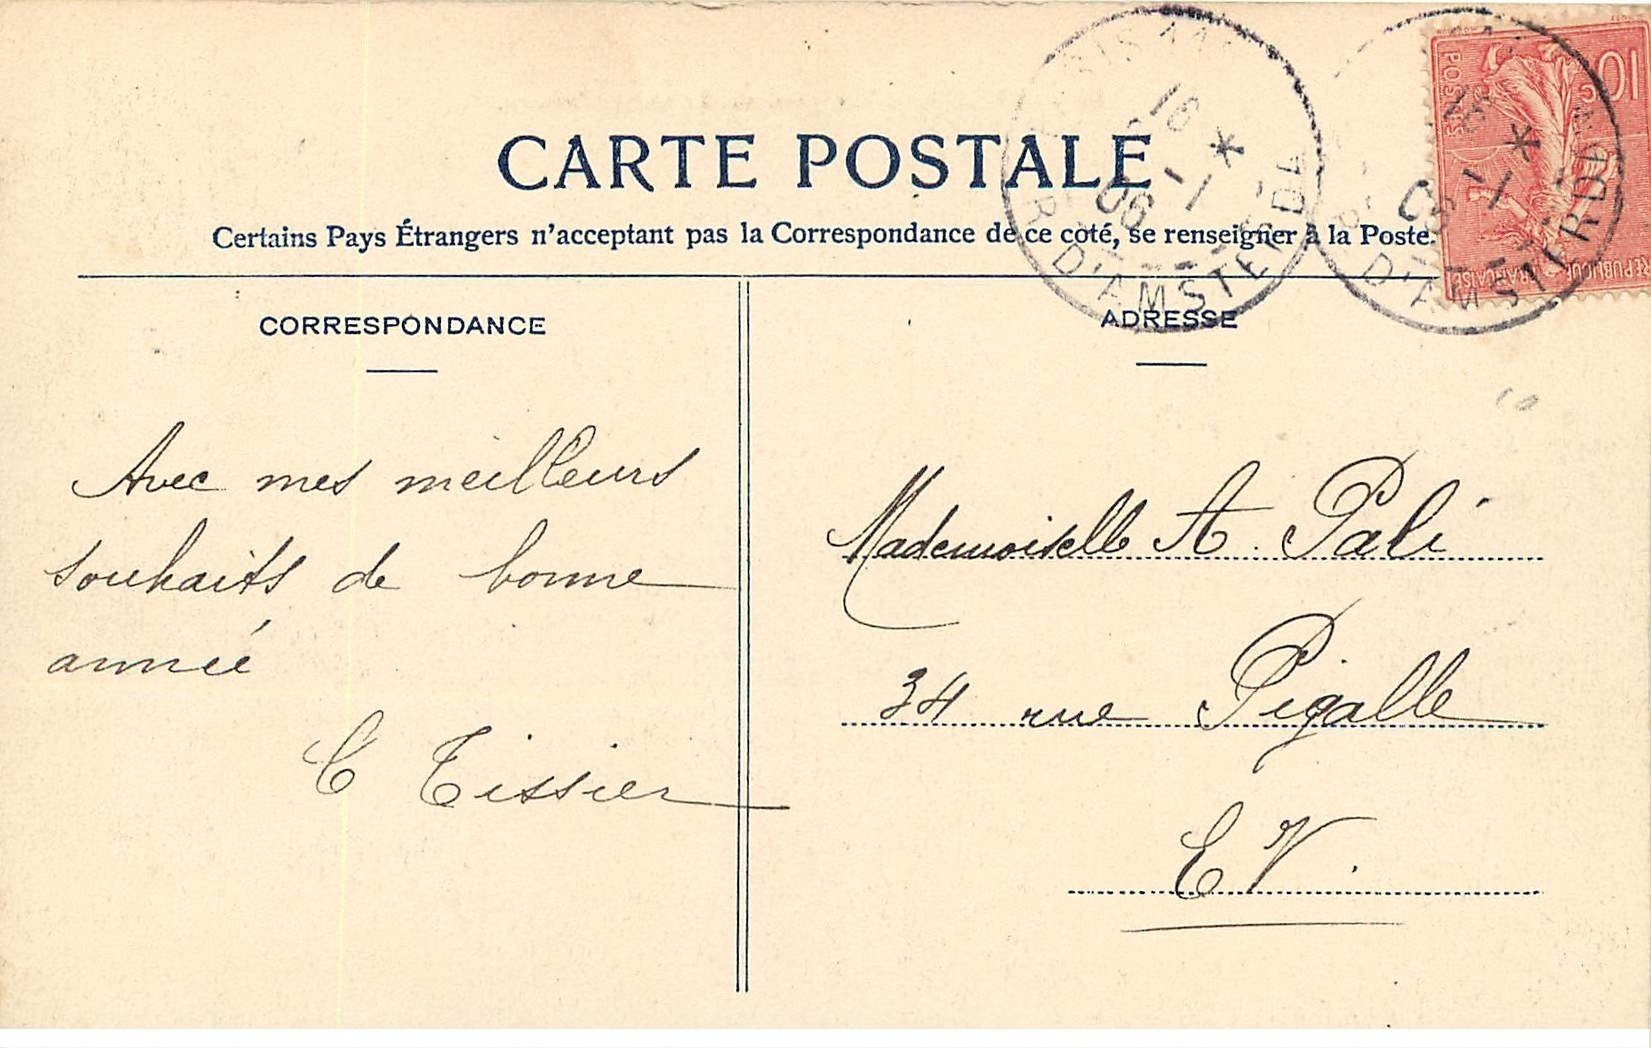 CARTE POSTALE
Certains Pays Étrangers n'acceptant pas la Correspondance de ce coté, se renseigner à la Poste.
CORRESPONDANCE
Avec mes meilleurs
souhaits de bonne
année
C Tissier
ADRESSE
Mademoiselle A. Pali
34 rue Pigalle
E V.
16 *
1
06
R D'AMSTERD
10
POSTES
REPUBLIQUE FRANÇAISE
D'AMSTERD